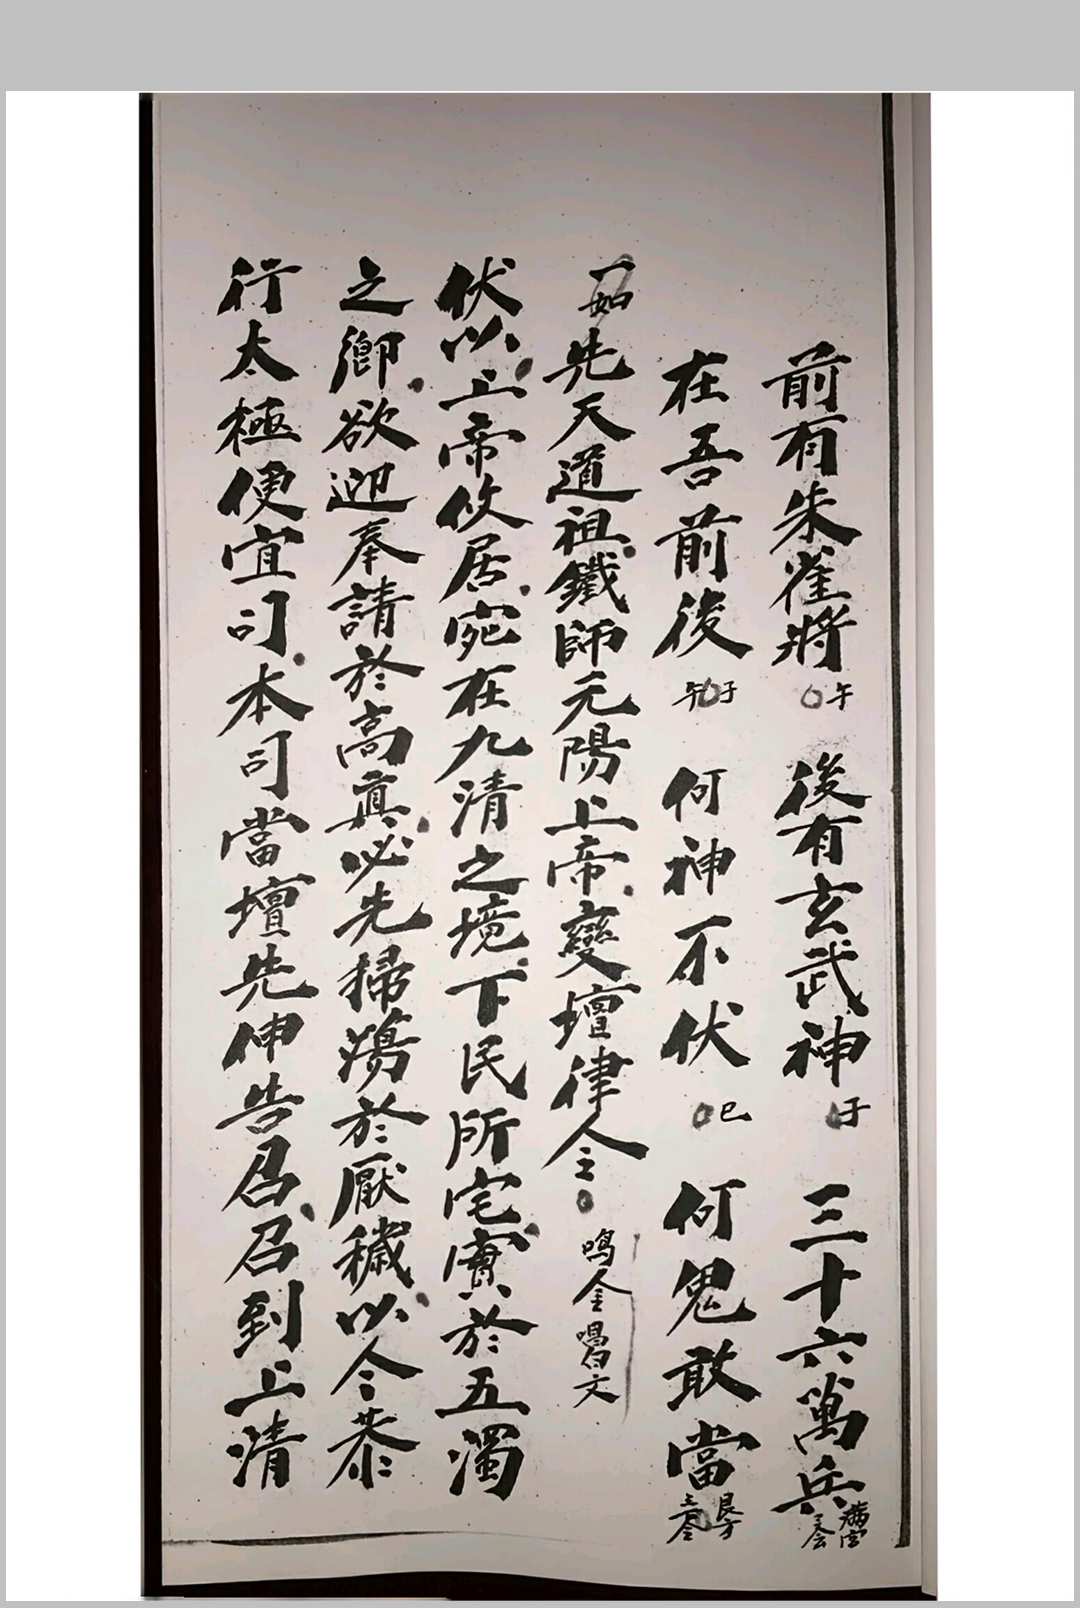 前有朱雀將 午 後有玄武神 子 三十六萬兵
在吾前後 子午 何神不伏 巳 何鬼敢當 艮方
一如先天道祖鐵師元陽上帝變壇律令 鳴金唱文
伏以上帝攸居宛在九清之境下民所宅實於五濁
之鄉欲迎奉請於高真必先掃蕩於厭穢以今恭
行太極便宜司本司當壇先伸告召召到上清